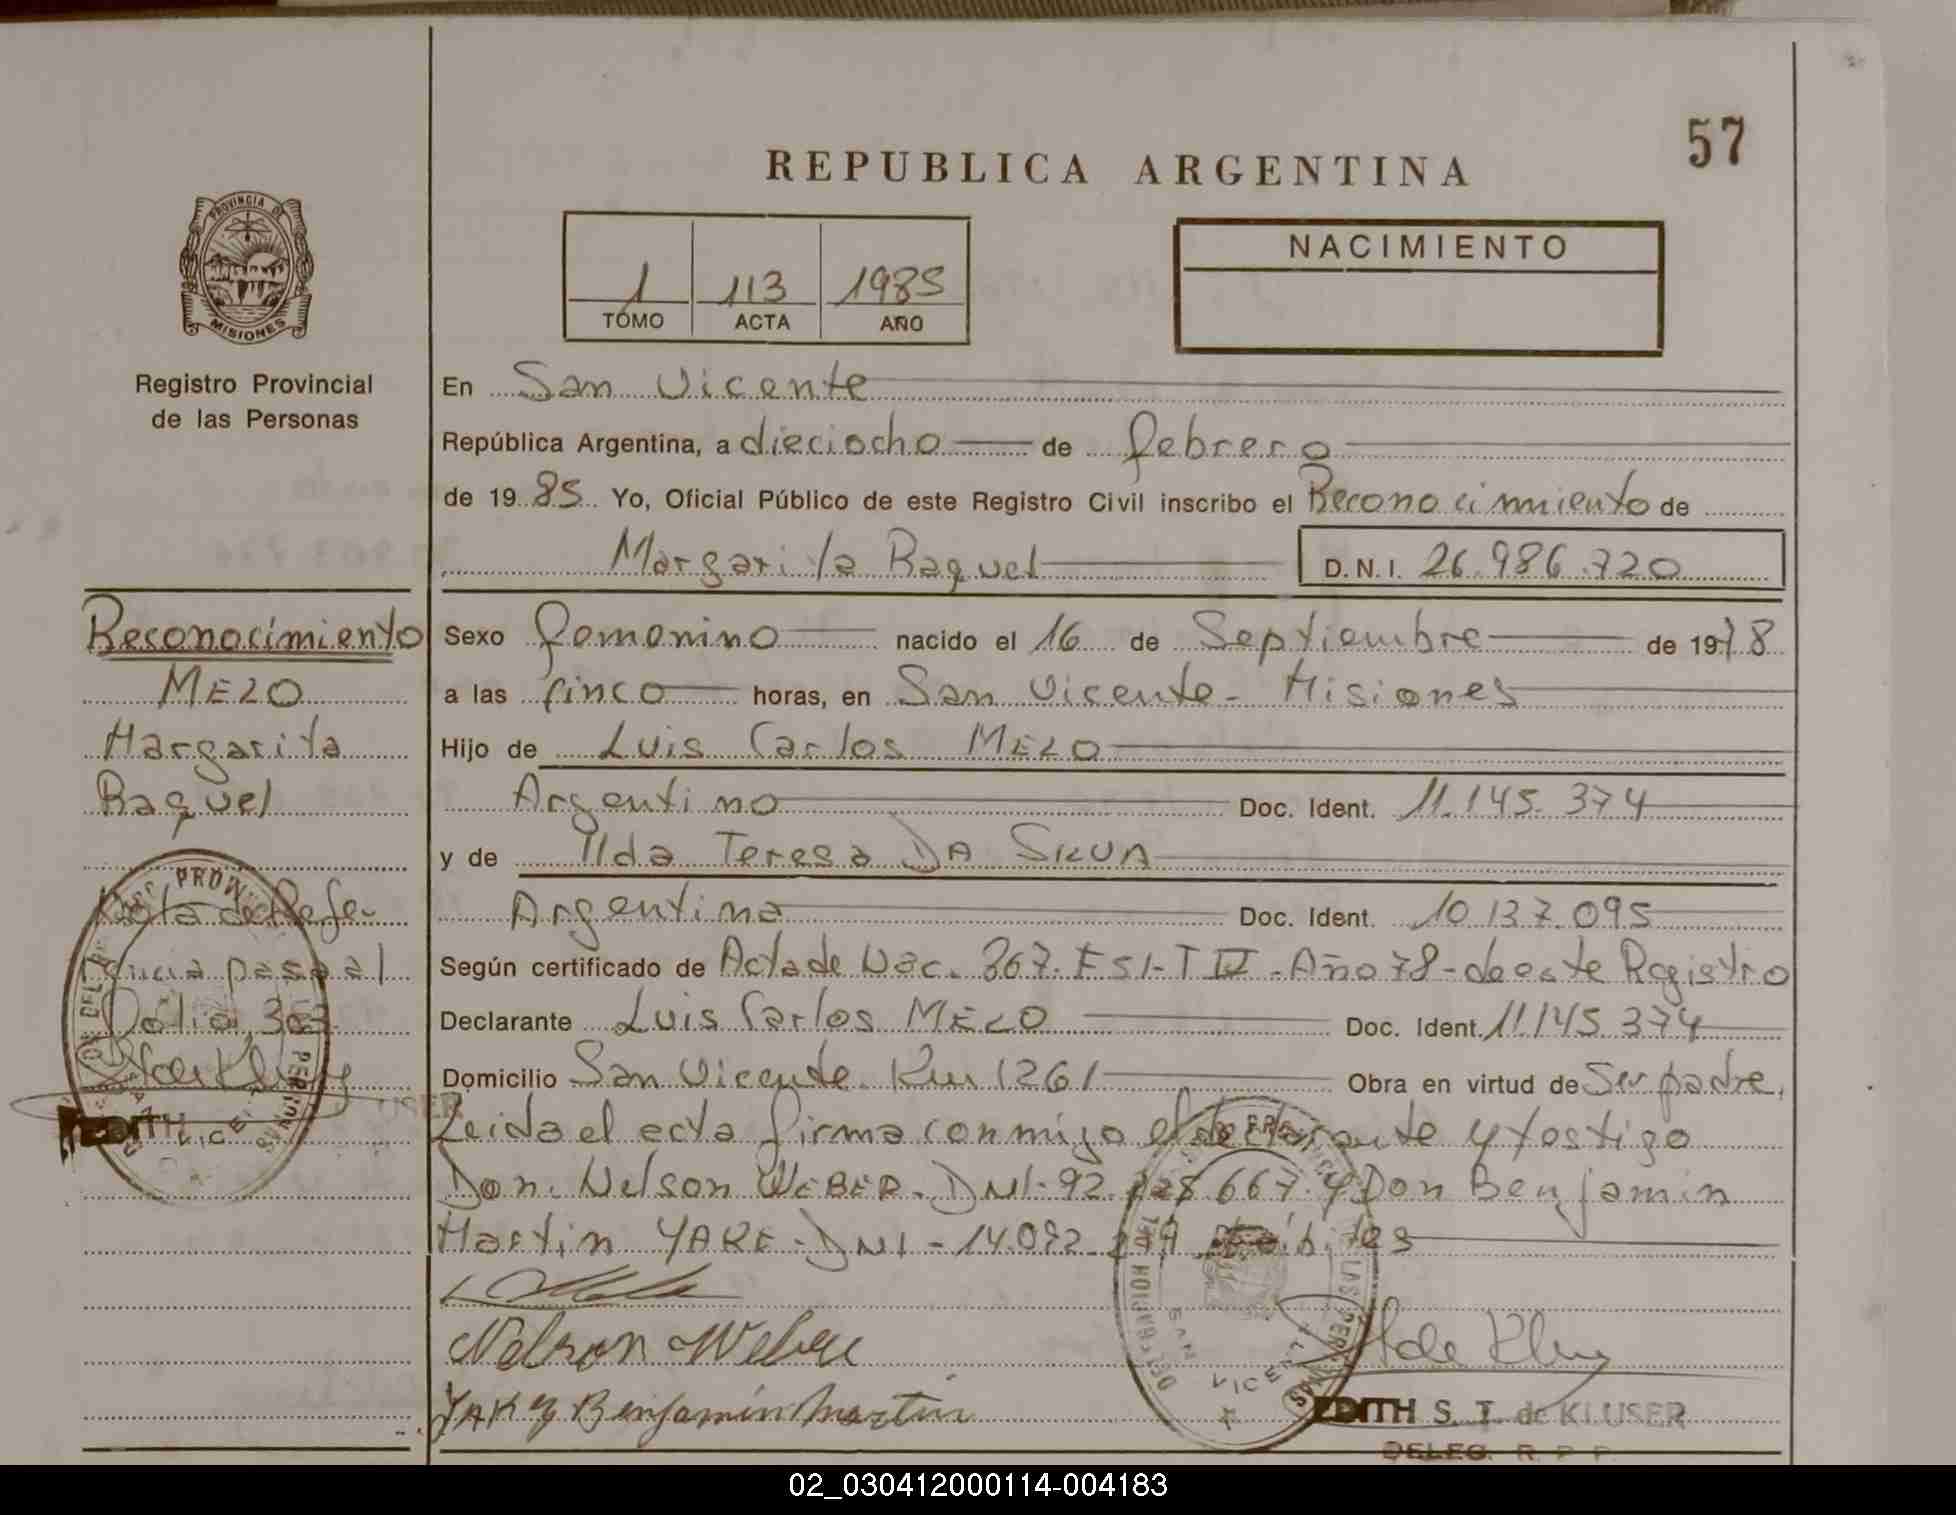 57
REPUBLICA ARGENTINA
PROVINCIA DE
MISIONES
1 113 1985
TOMO ACTA AÑO
NACIMIENTO
Registro Provincial
de las Personas
En San Vicente
República Argentina, a dieciocho de febrero
de 1985 Yo, Oficial Público de este Registro Civil inscribo el Reconocimiento de
Margarita Raquel D.N.I. 26.986.720
Reconocimiento
MELO
Margarita
Raquel
Nota de Refe-
rencia pasa al
Folio 303
EDITH
Sexo femenino nacido el 16 de Septiembre de 1978
a las cinco horas, en San Vicente - Misiones
Hijo de Luis Carlos MELO
Argentino Doc. Ident. 11.145.374
y de Ilda Teresa DA SILVA
Argentina Doc. Ident. 10.137.095
Según certificado de Acta de Nac. 367. F51-T IV - Año 78 - de este Registro
Declarante Luis Carlos MELO Doc. Ident. 11.145.374
Domicilio San Vicente Km 1261 Obra en virtud de Ser padre,
Leida el acta firma conmigo el declarante y testigo
Don. Nelson WEBER - DNI - 92. 667. y Don Benjamin
Martin - DNI - 14.092. hábiles
Nelson Weber
Benjamin Martin
EDITH S. T. de KLUSER
DELEG. R. P. P.
02_030412000114-004183